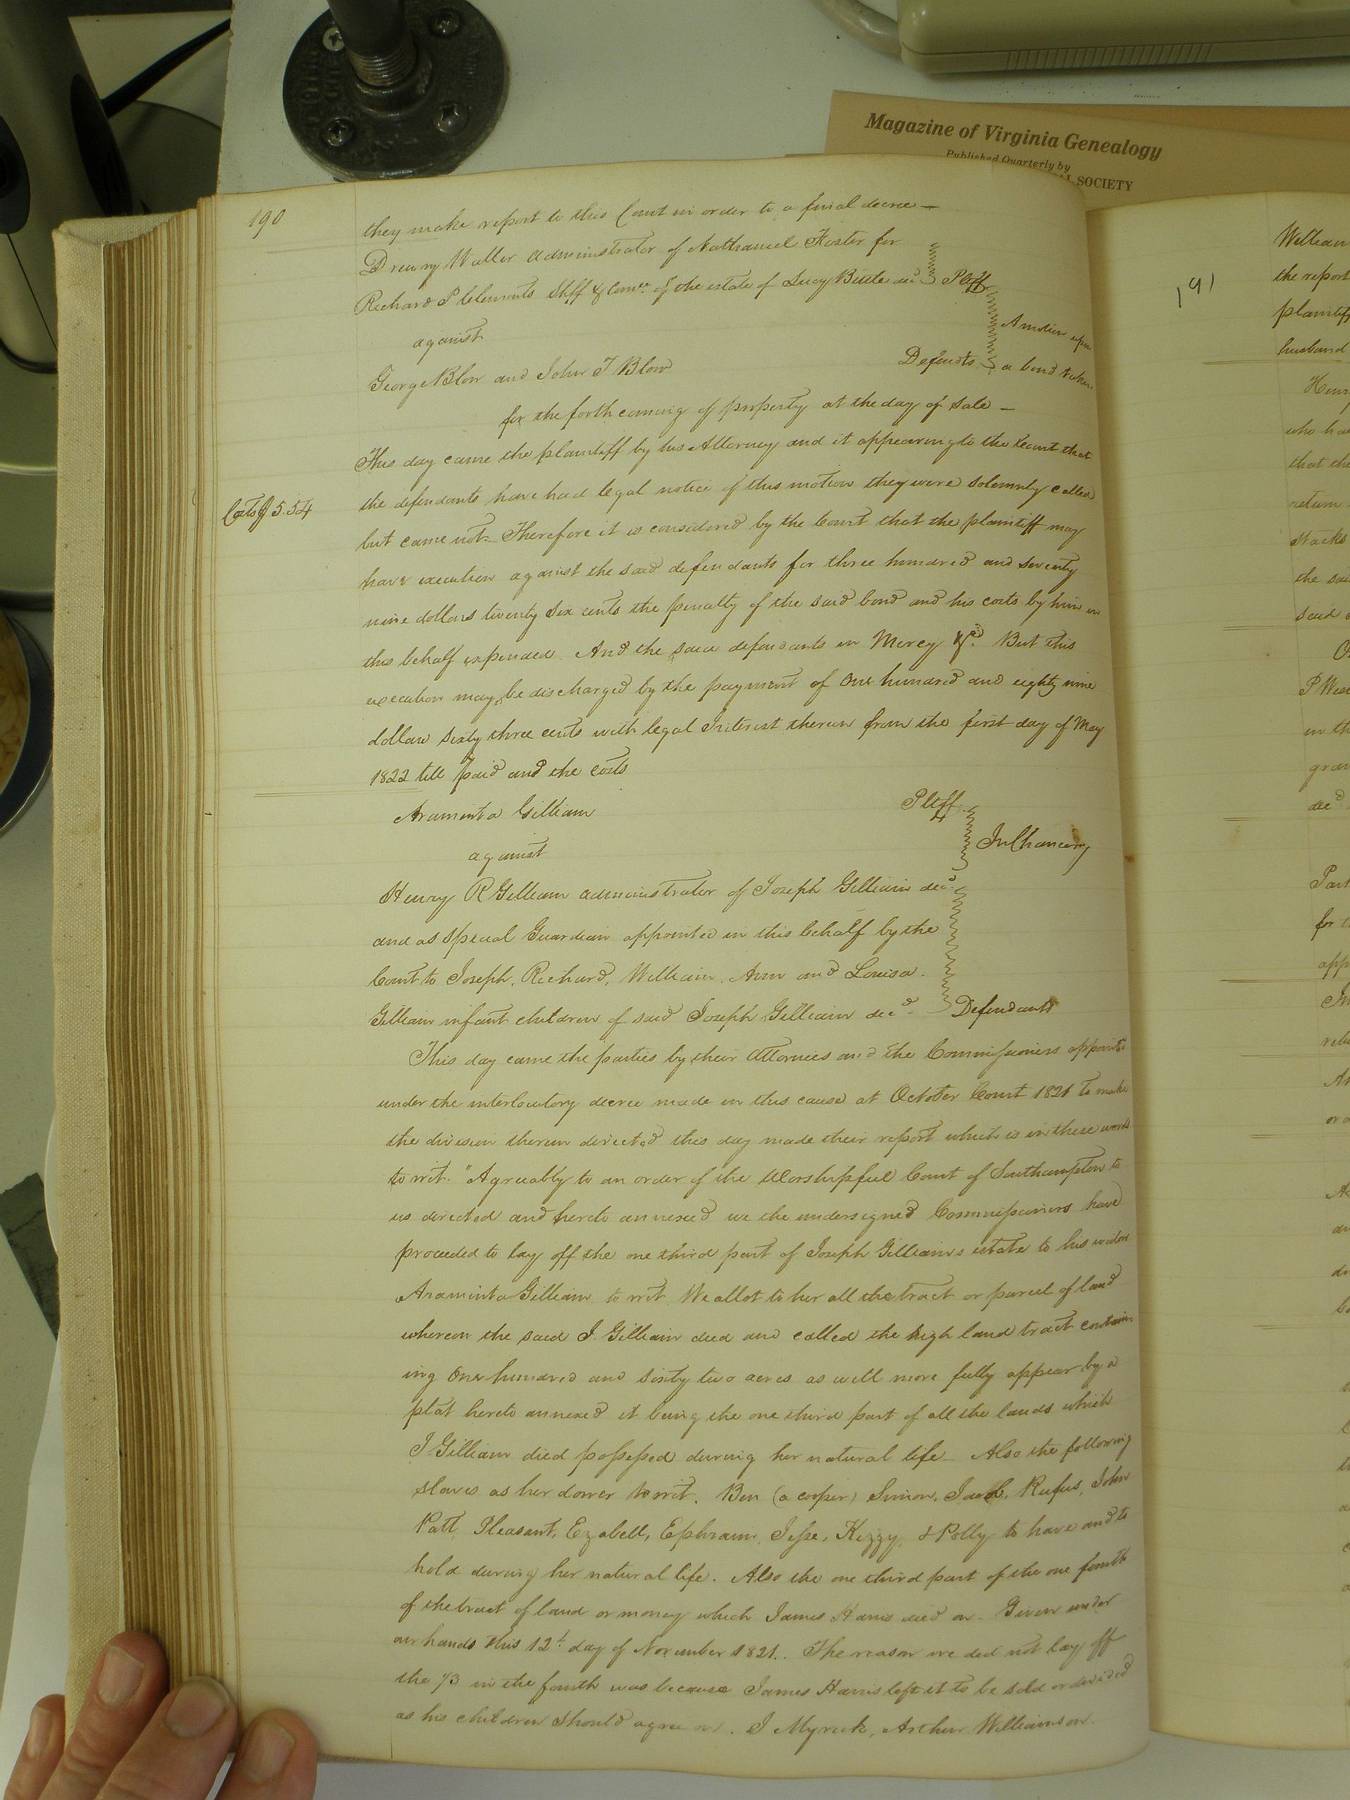 Magazine of Virginia Genealogy
Published Quarterly by
SOCIETY
190
they make report to this Court in order to a final decree —
Drewry Waller administrator of Nathaniel Foster for
Richard P Clements Shff & Comr. of the estate of Lucy decd Pltff
against
A motion upon
George Blow and John T Blow Defendts a bond taken
for the forthcoming of property at the day of Sale —
This day came the plaintiff by his Attorney and it appearing to the Court that
the defendants have had legal notice of this motion they were solemnly called
Costs $ 5.54
but came not – Therefore it is considered by the Court that the plaintiff may
have execution against the said defendants for three hundred and seventy
nine dollars twenty six cents the penalty of the said bond and his costs by him in
this behalf expended. And the said defendants in Mercy &c. But this
execution may be discharged by the payment of One hundred and eighty nine
dollars sixty three cents with legal Interest thereon from the first day of May
1822 till paid and the costs
Araminta Gilliam Pltff
against
In Chancery
Henry R Gilliam administrator of Joseph Gilliam decd
and as special Guardian appointed in this behalf by the
Court to Joseph, Richard, William, Ann and Louisa
Gilliam infant children of said Joseph Gilliam decd Defendants
This day came the parties by their Attornies and the Commissioners appointed
under the interlocutory decree made in this cause at October Court 1821 to make
the division therein directed this day made their report which is in these words
to wit. "Agreeably to an order of the Worshipful Court of Southampton to
us directed and hereto annexed we the undersigned Commissioners have
proceeded to lay off the one third part of Joseph Gilliams estate to his widow
Araminta Gilliam to wit We allot to her all the tract or parcel of land
whereon the said J. Gilliam died and called the high land tract contain
ing One hundred and sixty two acres as will more fully appear by a
plat hereto annexed it being the one third part of all the lands which
J Gilliam died possessed during her natural life – Also the following
slaves as her dower to wit. Ben (a cooper) Simon, Jacob, Rufus, John
Patt, Pleasant, Ezabell, Ephraim, Jesse, Kizzy, & Polly to have and to
hold during her natural life. Also the one third part of the one fourth
of the tract of land or money which James Harris died on – Given under
our hands this 12t. day of November 1821.. The reason we did not lay off
the 1/3 in the fourth was because James Harris left it to be sold or divided
as his children should agree on. J Myrick, Arthur Williamson
191
William
the report
plaintiff
husband
who ha
that the
return
stacks
the sai
said
P Wes
in th
gran
decd
Part
for t
app